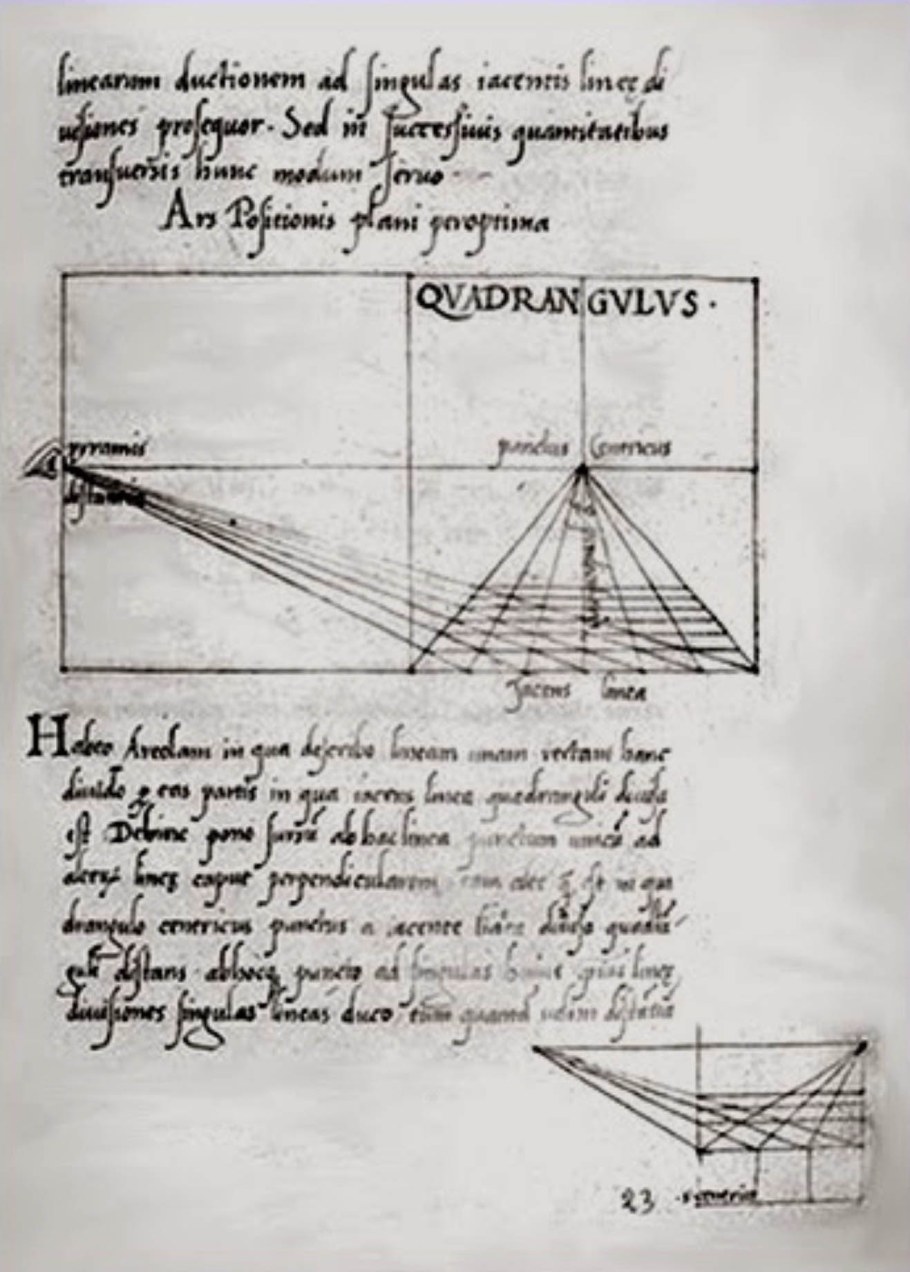 linearum ductionem ad singulas iacentis lineę di
uisiones prosequor. Sed in successiuis quantitatibus
transuersis hunc modum seruo
Ars Positionis plani peroptima
QVADRANGVLVS.
pyramis
punctus Centricus
distantia
Jacens linea
Habeo Areolam in qua describo lineam unam rectam hanc
diuido ꝑ eas partis in qua iacens linea quadranguli diuisa
est Dehinc pono sursũ ab hac linea punctum unicũ ad
lineę caput perpendicularem
drangulo centricus punctus a iacente diuisa
distans abhocq puncto ad singulas huius lineę
diuisiones singulas lineas duco, tum
23